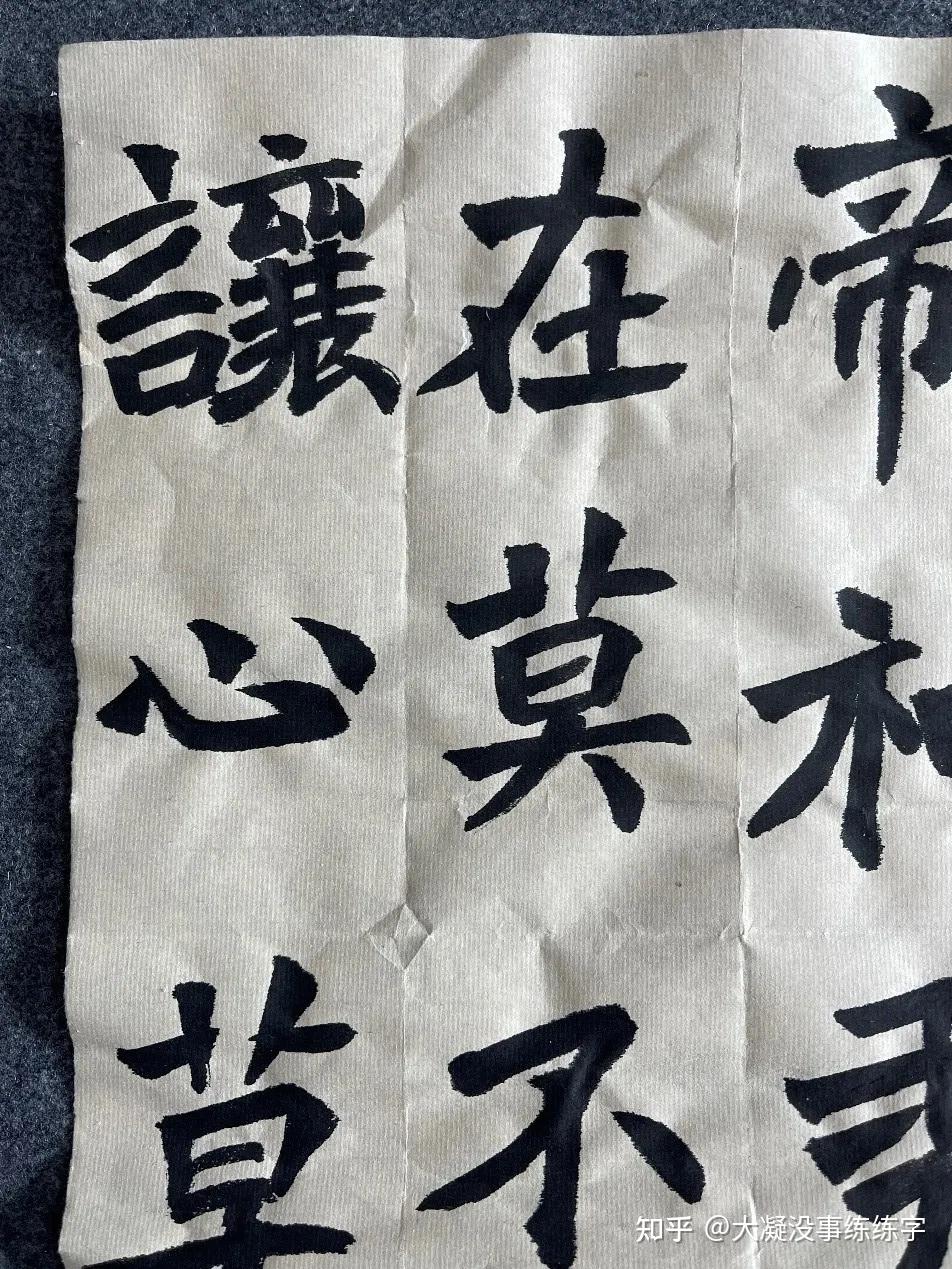 帝
在莫不
讓心草
知乎 @大凝没事练练字